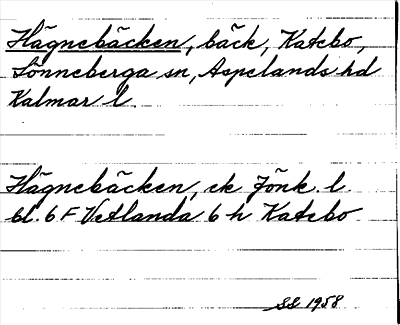 Hägnebäcken, bäck, Katebo,
Lönneberga sn, Aspelands hd
Kalmar l.
Hägnebäcken, ek Jönk. l
bl. 6 F Vetlanda 6 h Katebo
SS 1958